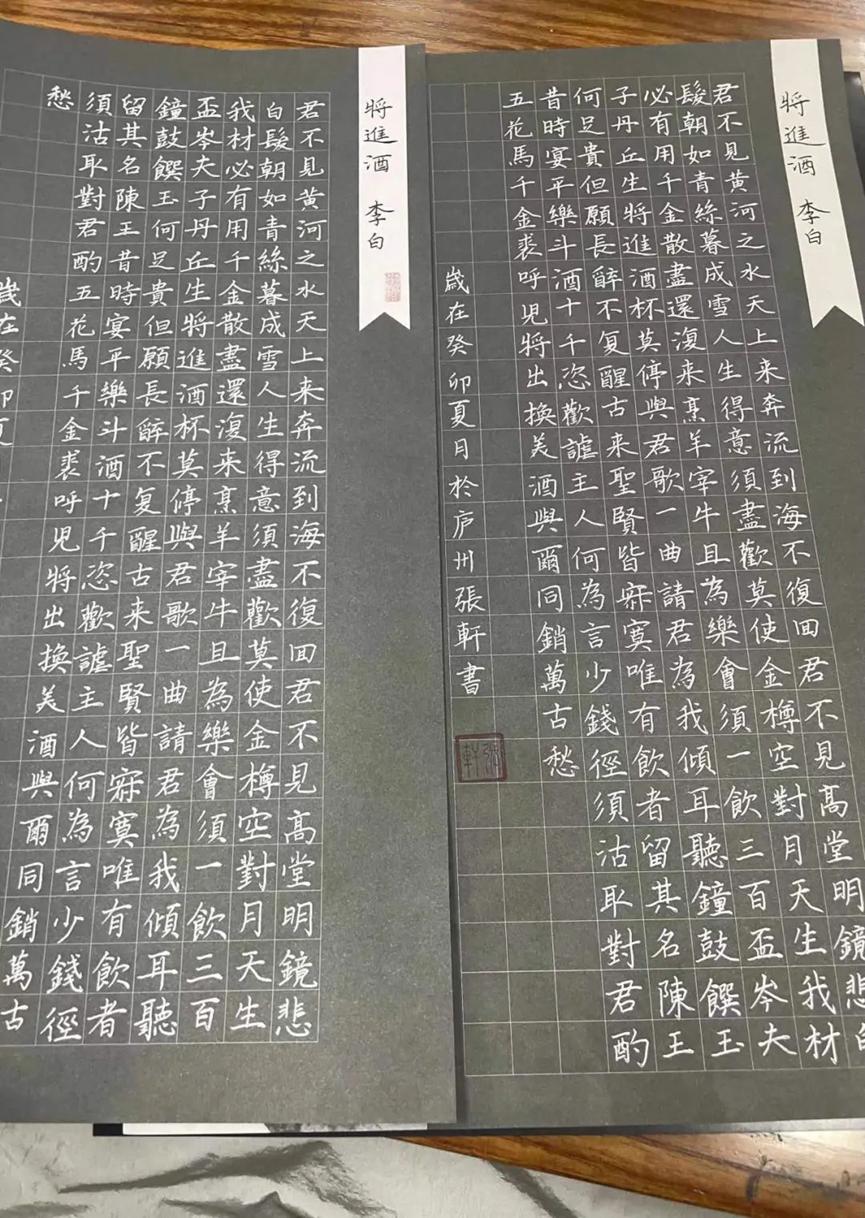 将進酒 李白
君不見黄河之水天上来奔流到海不復回君不見高堂明鏡悲白
髮朝如青絲暮成雪人生得意須盡歡莫使金樽空對月天生我材
必有用千金散盡還復来烹羊宰牛且為樂會須一飲三百盃岑夫
子丹丘生将進酒杯莫停與君歌一曲請君為我傾耳聽鐘鼓饌玉
何足貴但願長醉不复醒古来聖賢皆寂寞唯有飲者留其名陳王
昔時宴平樂斗酒十千恣歡謔主人何為言少錢徑須沽取對君酌
五花馬千金裘呼児将出換美酒與爾同銷萬古愁
歲在癸卯夏月於庐州張軒書
張軒
将進酒 李白
君不見黄河之水天上来奔流到海不復回君不見高堂明鏡悲
白髮朝如青絲暮成雪人生得意須盡歡莫使金樽空對月天生
我材必有用千金散盡還復来烹羊宰牛且為樂會須一飲三百
盃岑夫子丹丘生将進酒杯莫停與君歌一曲請君為我傾耳聽
鐘鼓饌玉何足貴但願長醉不复醒古来聖賢皆寂寞唯有飲者
留其名陳王昔時宴平樂斗酒十千恣歡謔主人何為言少錢徑
須沽取對君酌五花馬千金裘呼児将出換美酒與爾同銷萬古
愁
歲在癸卯夏